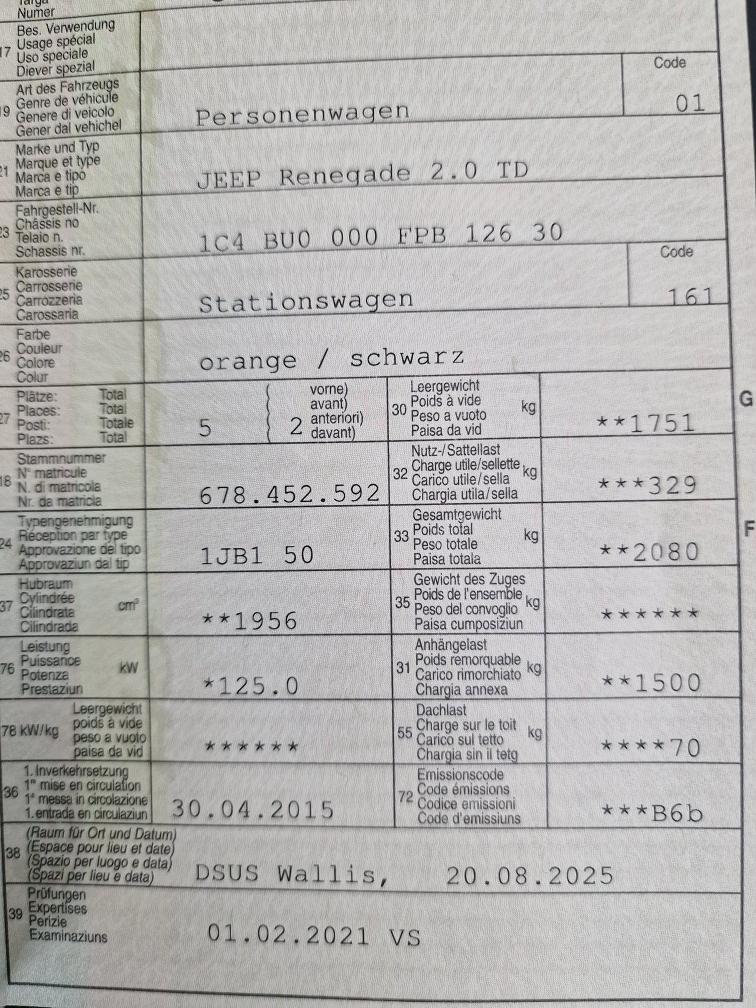 Numer
17 Bes. Verwendung
Usage spécial
Uso speciale
Diever spezial
19 Art des Fahrzeugs
Genre de véhicule
Genere di veicolo
Gener dal vehichel
Personenwagen
Code
01
21 Marke und Typ
Marque et type
Marca e tipo
Marca e tip
JEEP Renegade 2.0 TD
23 Fahrgestell-Nr.
Châssis no
Telaio n.
Schassis nr.
1C4 BU0 000 FPB 126 30
25 Karosserie
Carrosserie
Carrozzeria
Carossaria
Stationswagen
Code
161
26 Farbe
Couleur
Colore
Colur
orange / schwarz
27 Plätze: Total
Places: Total
Posti: Totale
Plazs: Total
5
2
vorne)
avant)
anteriori)
davant)
30 Leergewicht
Poids à vide
Peso a vuoto
Paisa da vid
kg
**1751
G
18 Stammnummer
N° matricule
N. di matricola
Nr. da matricla
678.452.592
32 Nutz-/Sattellast
Charge utile/sellette
Carico utile/sella
Chargia utila/sella
kg
***329
24 Typengenehmigung
Réception par type
Approvazione del tipo
Approvaziun dal tip
1JB1 50
33 Gesamtgewicht
Poids total
Peso totale
Paisa totala
kg
**2080
F
37 Hubraum
Cylindrée
Cilindrata
Cilindrada
cm³
**1956
35 Gewicht des Zuges
Poids de l'ensemble
Peso del convoglio
Paisa cumposiziun
kg
******
76 Leistung
Puissance
Potenza
Prestaziun
kW
*125.0
31 Anhängelast
Poids remorquable
Carico rimorchiato
Chargia annexa
kg
**1500
78 kW/kg
Leergewicht
poids à vide
peso a vuoto
paisa da vid
******
55 Dachlast
Charge sur le toit
Carico sul tetto
Chargia sin il tetg
kg
****70
36 1. Inverkehrsetzung
1re mise en circulation
1a messa in circolazione
1. entrada en circulaziun
30.04.2015
72 Emissionscode
Code émissions
Codice emissioni
Code d'emissiuns
***B6b
38 (Raum für Ort und Datum)
(Espace pour lieu et date)
(Spazio per luogo e data)
(Spazi per lieu e data)
DSUS Wallis, 20.08.2025
39 Prüfungen
Expertises
Perizie
Examinaziuns
01.02.2021 VS